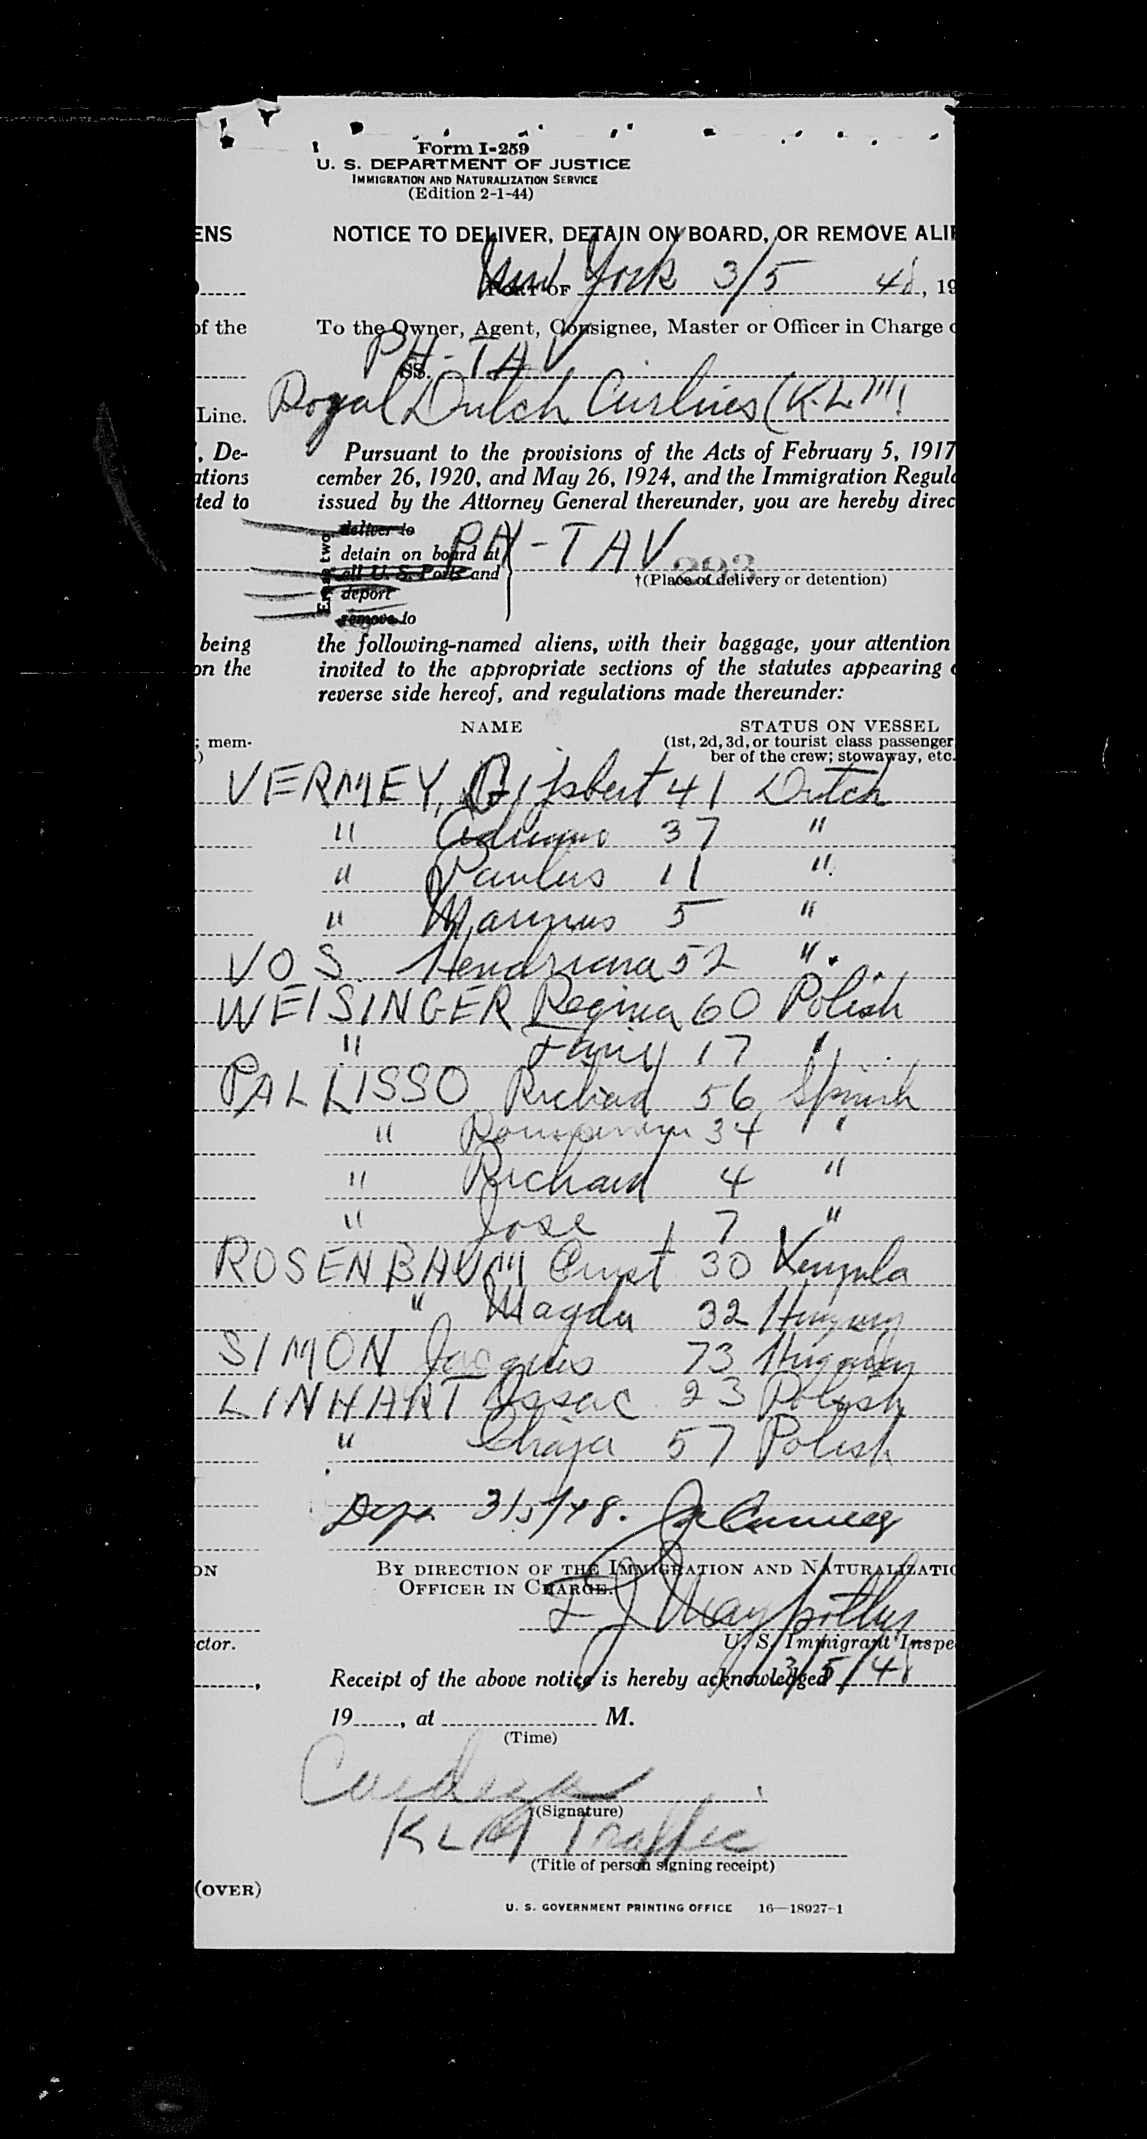 Form I-259
U. S. DEPARTMENT OF JUSTICE
IMMIGRATION AND NATURALIZATION SERVICE
(Edition 2-1-44)
ENS NOTICE TO DELIVER, DETAIN ON BOARD, OR REMOVE ALIE
PORT OF New York 3/5 48, 19
of the To the Owner, Agent, Consignee, Master or Officer in Charge o
SS. PH-TAV
Line. Royal Dutch Airlines (K.L.M)
, De- Pursuant to the provisions of the Acts of February 5, 1917
ations cember 26, 1920, and May 26, 1924, and the Immigration Regula
ted to issued by the Attorney General thereunder, you are hereby direc
deliver to
detain on board at PH-TAV
all U. S. Ports and 293
†(Place of delivery or detention)
deport
remove to
Erase two
being the following-named aliens, with their baggage, your attention
on the invited to the appropriate sections of the statutes appearing o
reverse side hereof, and regulations made thereunder:
NAME STATUS ON VESSEL
; mem- (1st, 2d, 3d, or tourist class passenger
) ber of the crew; stowaway, etc.
VERMEY, Gijsbert 41 Dutch
" 37 "
" Paulus 11 "
" Marinus 5 "
VOS Hendriana 52 "
WEISINGER Regina 60 Polish
" Fany 17 "
PALLISSO Richad 56 Spanish
" 34 "
" Richard 4 "
" Jose 7 "
ROSENBAUM Ernst 30
" Magda 32 Hungary
SIMON Jacquis 73
LINHART Issac 23 Polish
" Chaja 57 Polish
Dep. 3/5/48.
ON BY DIRECTION OF THE IMMIGRATION AND NATURALIZATIO
OFFICER IN CHARGE.
ctor. U. S. Immigrant Inspe
Receipt of the above notice is hereby acknowledged 3/5/48
19 , at M.
(Time)
(Signature)
KLM Traffic
(Title of person signing receipt)
(OVER)
U. S. GOVERNMENT PRINTING OFFICE 16—18927-1